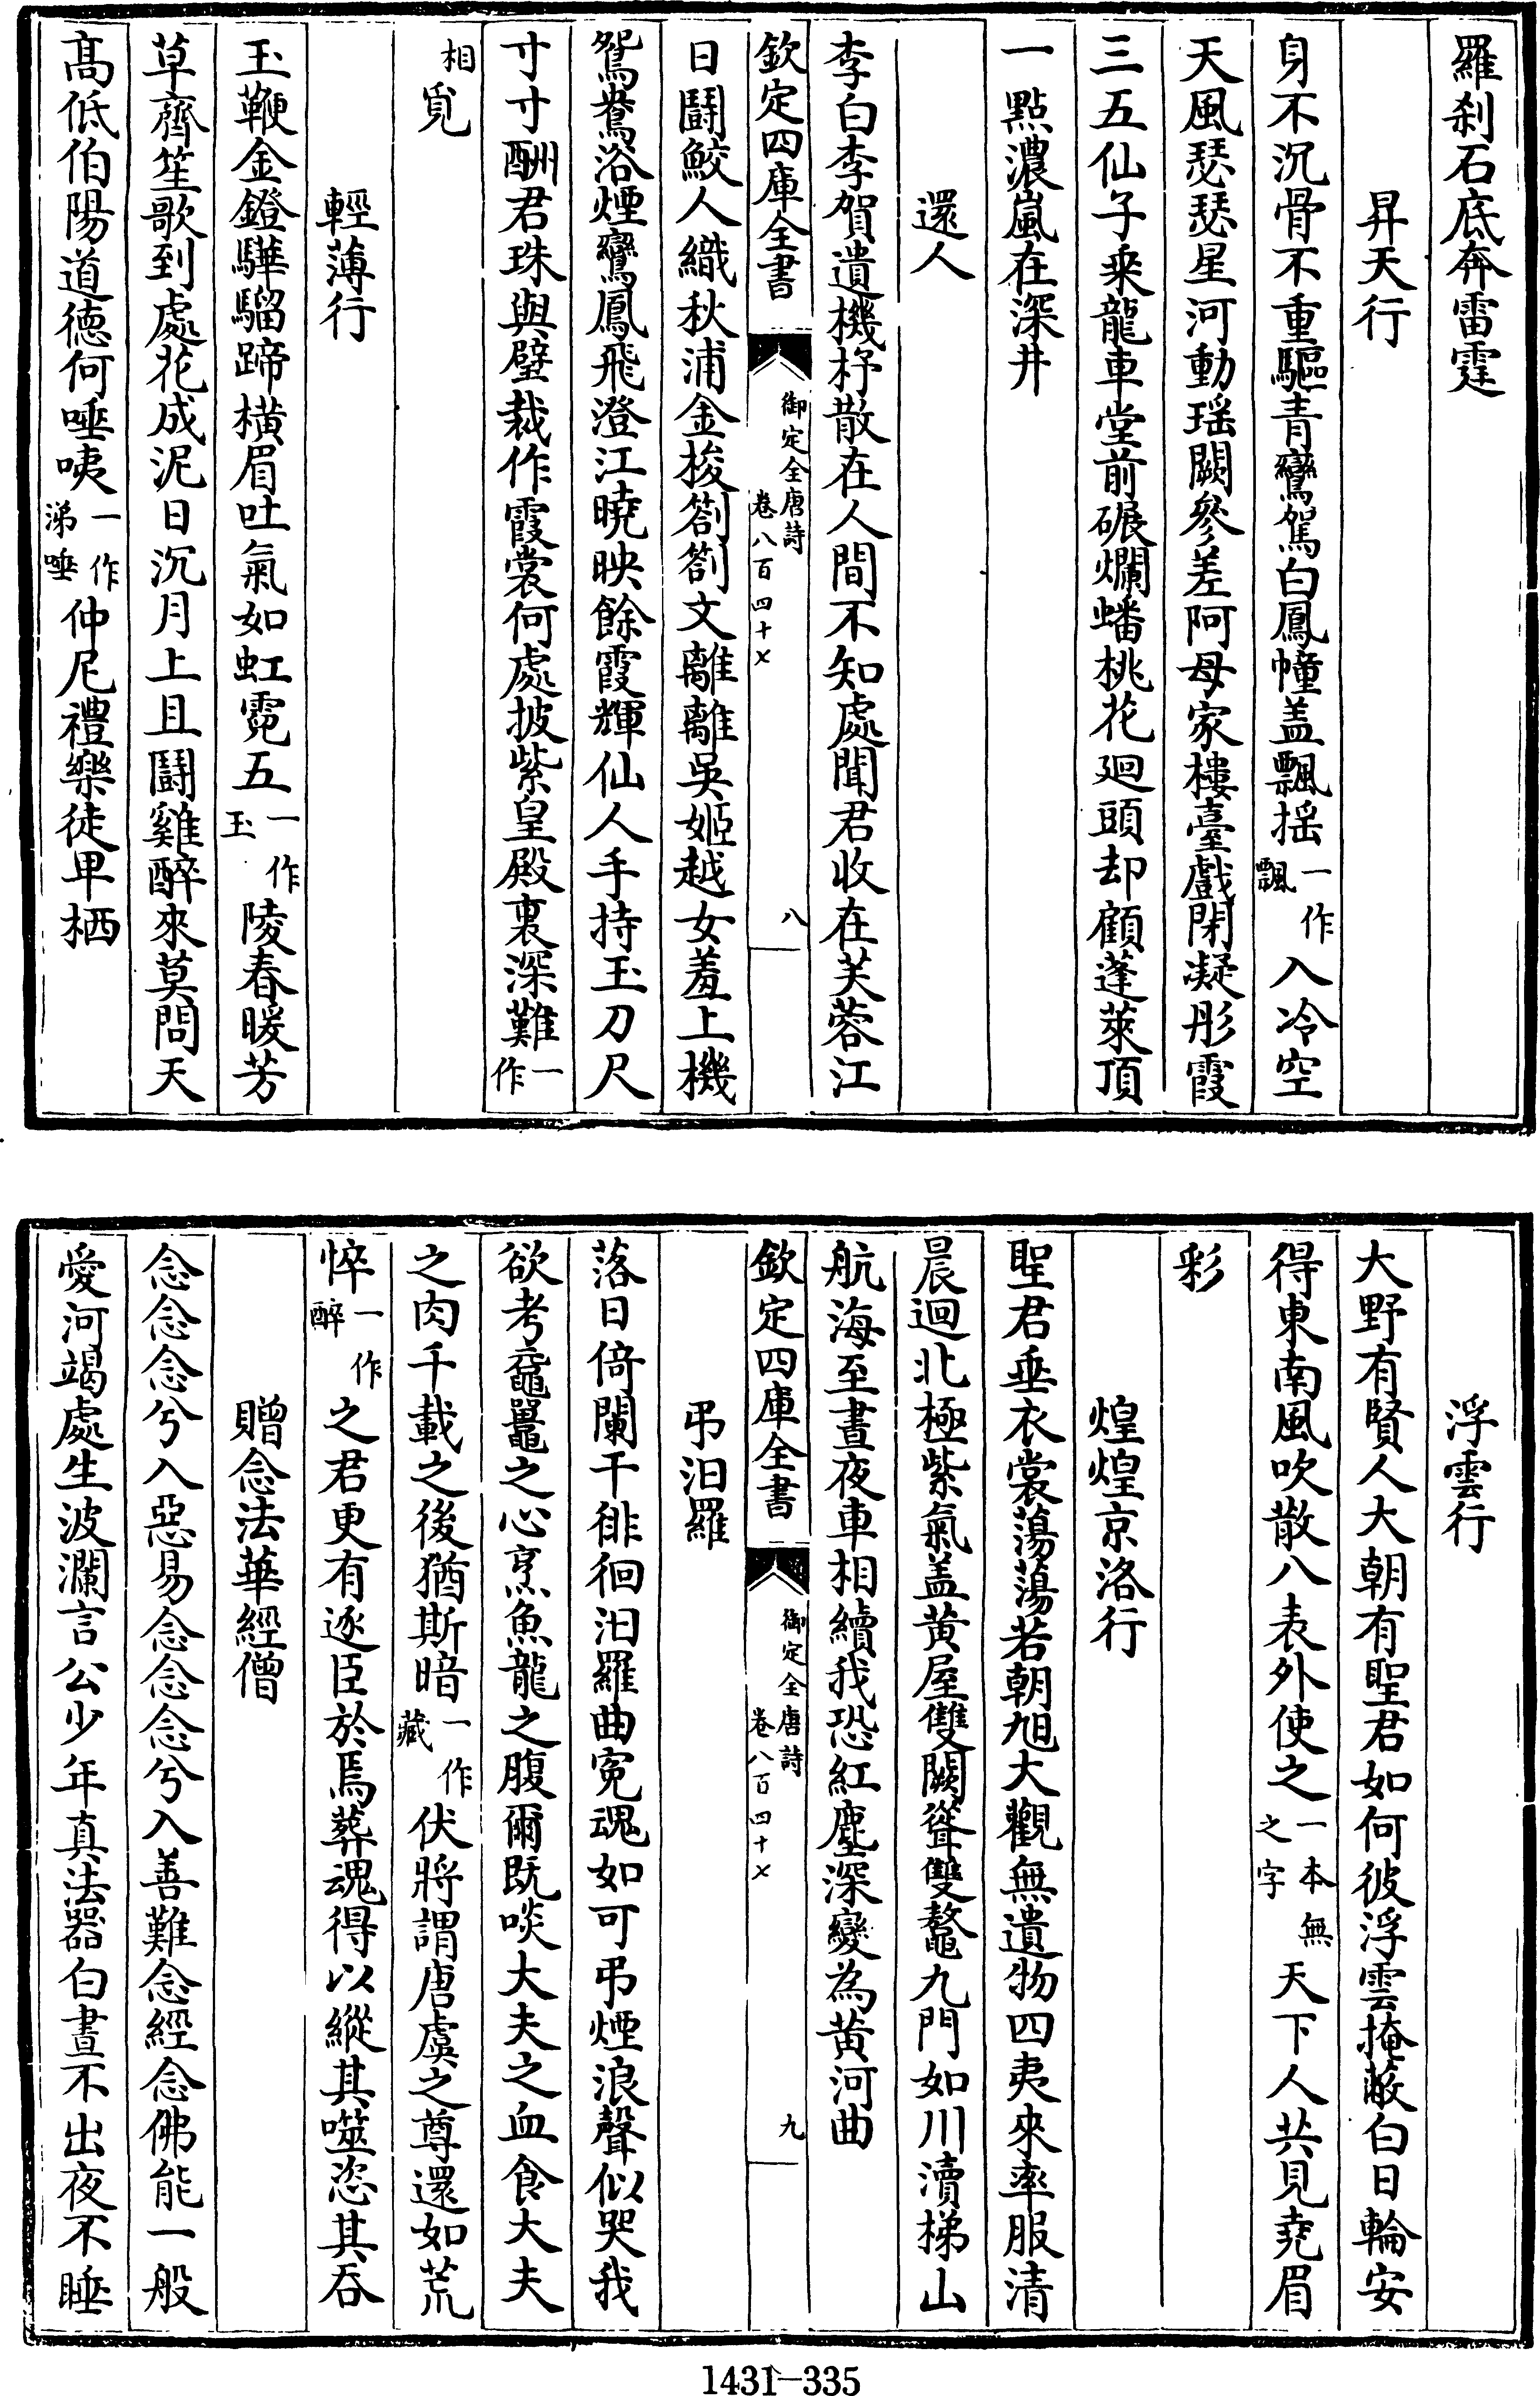 羅刹石底奔雷霆
昇天行
身不沉骨不重驅青鸞駕白鳳幢盖飄揺一作飄入冷空
天風瑟瑟星河動瑶闕參差阿母家樓臺戲閉凝彤霞
三五仙子乗龍車堂前碾爛蟠桃花廻頭却顧蓬萊頂
一點濃嵐在深井
還人
李白李賀遺機杼散在人間不知處聞君收在芙蓉江
欽定四庫全書
御定全唐詩
卷八百四十七
八
日鬪鮫人織秋浦金梭劄劄文離離吳姬越女羞上機
鴛鴦浴煙鸞鳳飛澄江曉映餘霞輝仙人手持玉刀尺
寸寸酬君珠與璧裁作霞裳何處披紫皇殿裏深難一作
相覓
輕薄行
玉鞭金鐙驊騮蹄横眉吐氣如虹霓五一作玉陵春暖芳
草齊笙歌到處花成泥日沉月上且鬪雞醉來莫問天
髙低伯陽道德何唾咦一作涕唾仲尼禮樂徒卑栖
浮雲行
大野有賢人大朝有聖君如何彼浮雲掩蔽白日輪安
得東南風吹散八表外使之一本無之字天下人共見堯眉
彩
煌煌京洛行
聖君垂衣裳蕩蕩若朝旭大觀無遺物四夷來率服清
晨迴北極紫氣盖黄屋雙闕聳雙鼇九門如川瀆梯山
航海至晝夜車相續我恐紅塵深變為黄河曲
欽定四庫全書
御定全唐詩
卷八百四十七
九
弔汨羅
落日倚闌干徘徊汨羅曲寃魂如可弔煙浪聲似哭我
欲考黿鼉之心烹魚龍之腹爾既啖大夫之血食大夫
之肉千載之後猶斯暗一作藏伏將謂唐虞之尊還如荒
悴一作醉之君更有逐臣於焉葬魂得以縱其噬恣其吞
贈念法華經僧
念念念兮入惡易念念念兮入善難念經念佛能一般
愛河竭處生波瀾言公少年真法器白晝不出夜不睡
1431-335